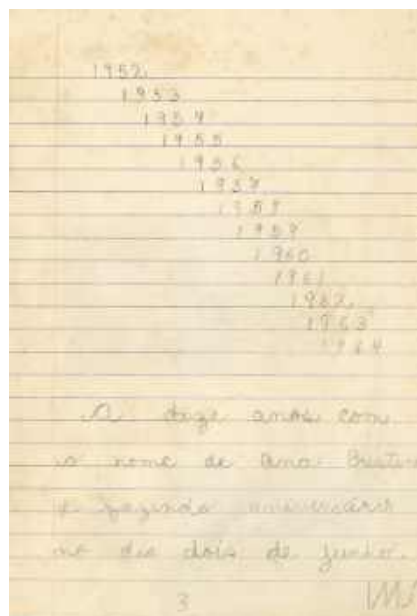 1952.
1953
1954
1955
1956
1957
1958
1959
1960
1961
1962.
1963
1964
A doze anos com
o nome de Ana Cristina
e fazendo aniversário
no dia dois de junho.
3